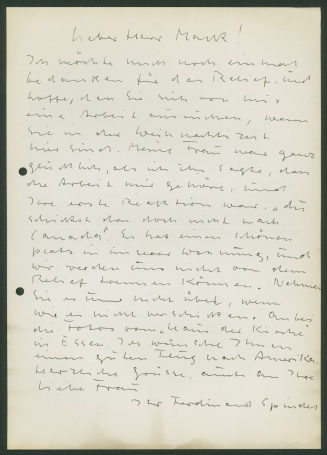 Lieber Herr Mack!
Ich möchte mich noch einmal
bedanken für das Relief und
hoffe, das Sie sich von mir
eine Arbeit aussuchen, wenn
Sie in der Weihnachtszeit
hier sind. Meine Frau war ganz
glücklich, als ich ihr sagte, das
die Arbeit mir gehöre, und
Ihre erste Reaktion war "du
schickst das doch nicht nach
Canada". Es hat einen schönen
platz in unserer Wohnung, und
wir werden uns nicht von dem
Relief trennen können. Nehmen
Sie es uns nicht übel, wenn
wir es nicht verschicken. Anbei
die Fotos vom der Kirche
in Essen. Ich wünsche Ihnen
einen guten Flug nach Amerika.
Herzliche Grüsse, auch an Ihre
liebe Frau
Ihr Ferdinand Spindel